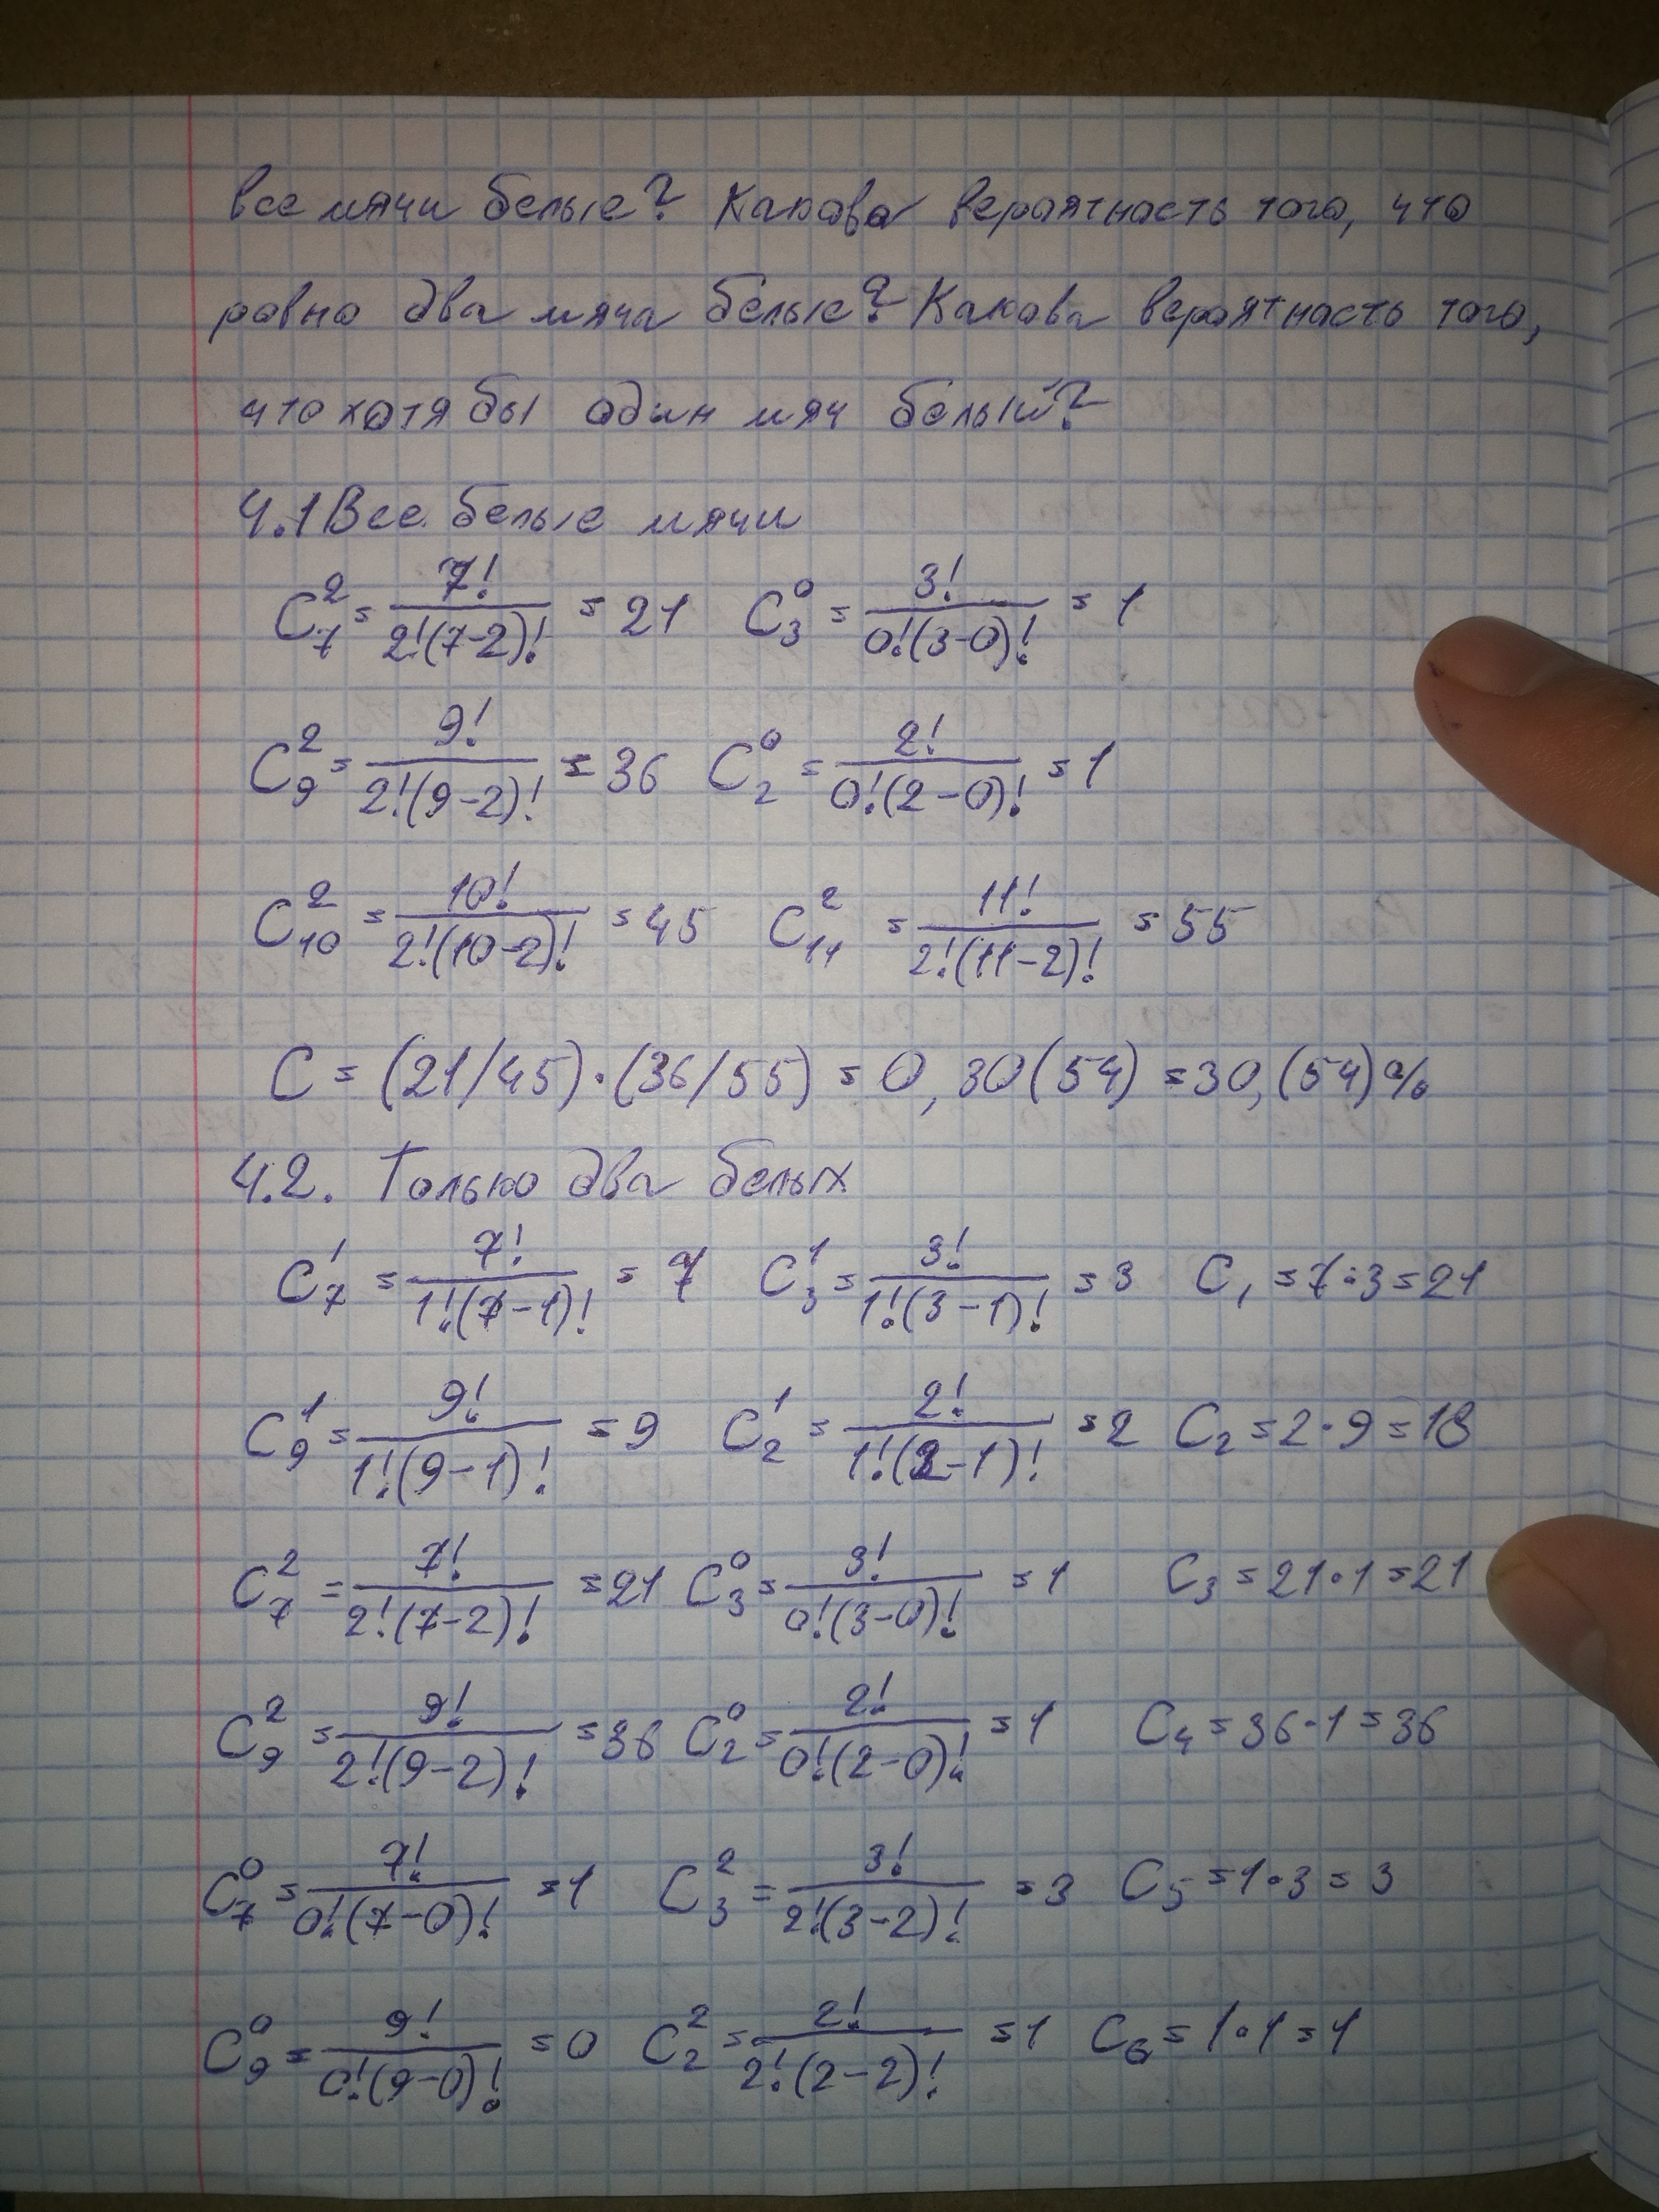 все мячи белые? Какова вероятность того, что
ровно два мяча белые? Какова вероятность того,
что хотя бы один мяч белый?
4.1 Все белые мячи
C₇² = 7!/(2!(7-2)!) = 21 C₃⁰ = 3!/(0!(3-0)!) = 1
C₉² = 9!/(2!(9-2)!) = 36 C₂⁰ = 2!/(0!(2-0)!) = 1
C₁₀² = 10!/(2!(10-2)!) = 45 C₁₁² = 11!/(2!(11-2)!) = 55
C = (21/45)·(36/55) = 0,30(54) = 30,(54)%
4.2. Только два белых
C₇¹ = 7!/(1!(7-1)!) = 7 C₃¹ = 3!/(1!(3-1)!) = 3 C₁ = 7·3 = 21
C₉¹ = 9!/(1!(9-1)!) = 9 C₂¹ = 2!/(1!(2-1)!) = 2 C₂ = 2·9 = 18
C₇² = 7!/(2!(7-2)!) = 21 C₃⁰ = 3!/(0!(3-0)!) = 1 C₃ = 21·1 = 21
C₉² = 9!/(2!(9-2)!) = 36 C₂⁰ = 2!/(0!(2-0)!) = 1 C₄ = 36·1 = 36
C₇⁰ = 7!/(0!(7-0)!) = 1 C₃² = 3!/(2!(3-2)!) = 3 C₅ = 1·3 = 3
C₉⁰ = 9!/(0!(9-0)!) = 0 C₂² = 2!/(2!(2-2)!) = 1 C₆ = 1·1 = 1